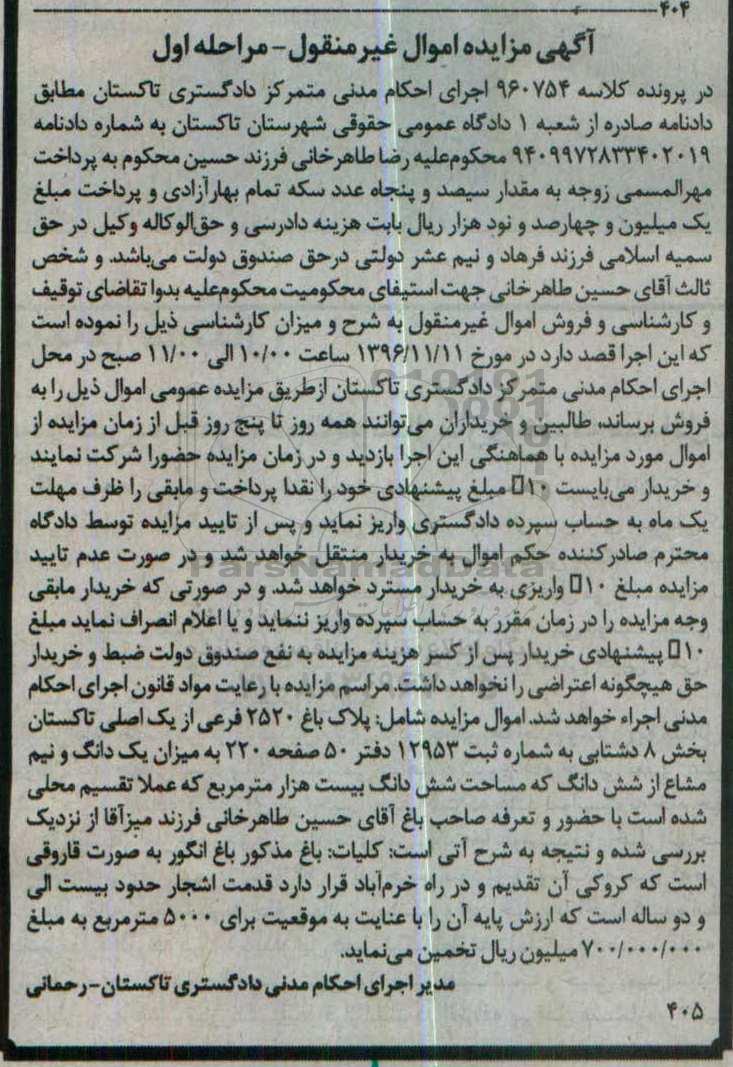 ۴۰۴
آگهی مزایده اموال غیرمنقول - مراحله اول
در پرونده کلاسه ۹۶۰۷۵۴ اجرای احکام مدنی متمرکز دادگستری تاکستان مطابق
دادنامه صادره از شعبه ۱ دادگاه عمومی حقوقی شهرستان تاکستان به شماره دادنامه
۹۴۰۹۹۷۲۸۳۳۴۰۲۰۱۹ محکوم‌علیه رضا طاهرخانی فرزند حسین محکوم به پرداخت
مهرالمسمی زوجه به مقدار سیصد و پنجاه عدد سکه تمام بهارآزادی و پرداخت مبلغ
یک میلیون و چهارصد و نود هزار ریال بابت هزینه دادرسی و حق‌الوکاله وکیل در حق
سمیه اسلامی فرزند فرهاد و نیم عشر دولتی درحق صندوق دولت می‌باشد. و شخص
ثالث آقای حسین طاهرخانی جهت استیفای محکومیت محکوم‌علیه بدوا تقاضای توقیف
و کارشناسی و فروش اموال غیرمنقول به شرح و میزان کارشناسی ذیل را نموده است
که این اجرا قصد دارد در مورخ ۱۳۹۶/۱۱/۱۱ ساعت ۱۰/۰۰ الی ۱۱/۰۰ صبح در محل
اجرای احکام مدنی متمرکز دادگستری تاکستان ازطریق مزایده عمومی اموال ذیل را به
فروش برساند، طالبین و خریداران می‌توانند همه روز تا پنج روز قبل از زمان مزایده از
اموال مورد مزایده با هماهنگی این اجرا بازدید و در زمان مزایده حضورا شرکت نمایند
و خریدار می‌بایست ۱۰□ مبلغ پیشنهادی خود را نقدا پرداخت و مابقی را ظرف مهلت
یک ماه به حساب سپرده دادگستری واریز نماید و پس از تایید مزایده توسط دادگاه
محترم صادرکننده حکم اموال به خریدار منتقل خواهد شد و در صورت عدم تایید
مزایده مبلغ ۱۰□ واریزی به خریدار مسترد خواهد شد. و در صورتی که خریدار مابقی
وجه مزایده را در زمان مقرر به حساب سپرده واریز ننماید و یا اعلام انصراف نماید مبلغ
۱۰□ پیشنهادی خریدار پس از کسر هزینه مزایده به نفع صندوق دولت ضبط و خریدار
حق هیچگونه اعتراضی را نخواهد داشت. مراسم مزایده با رعایت مواد قانون اجرای احکام
مدنی اجراء خواهد شد. اموال مزایده شامل: پلاک باغ ۲۵۲۰ فرعی از یک اصلی تاکستان
بخش ۸ دشتابی به شماره ثبت ۱۲۹۵۳ دفتر ۵۰ صفحه ۲۲۰ به میزان یک دانگ و نیم
مشاع از شش دانگ که مساحت شش دانگ بیست هزار مترمربع که عملا تقسیم محلی
شده است با حضور و تعرفه صاحب باغ آقای حسین طاهرخانی فرزند میرآقا از نزدیک
بررسی شده و نتیجه به شرح آتی است: کلیات: باغ مذکور باغ انگور به صورت قاروقی
است که کروکی آن تقدیم و در راه خرم‌آباد قرار دارد قدمت اشجار حدود بیست الی
و دو ساله است که ارزش پایه آن را با عنایت به موقعیت برای ۵۰۰۰ مترمربع به مبلغ
۷۰۰/۰۰۰/۰۰۰ میلیون ریال تخمین می‌نماید.
مدیر اجرای احکام مدنی دادگستری تاکستان - رحمانی
۴۰۵
ParsNamadData